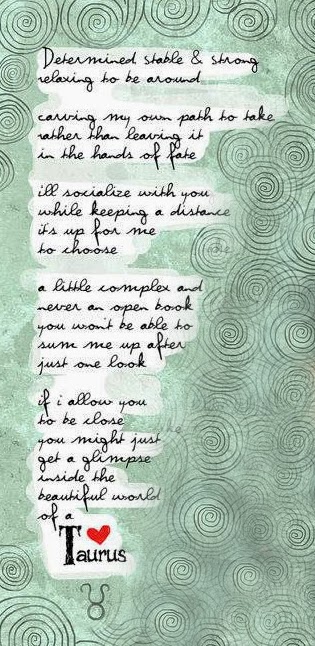 Determined, stable & strong
relaxing to be around
carving my own path to take
rather than leaving it
in the hands of fate
ill socialize with you
while keeping a distance
it's up for me
to choose
a little complex and
never an open book
you won't be able to
sum me up after
just one look
if i allow you
to be close
you might just
get a glimpse
inside the
beautiful world
of a
Taurus